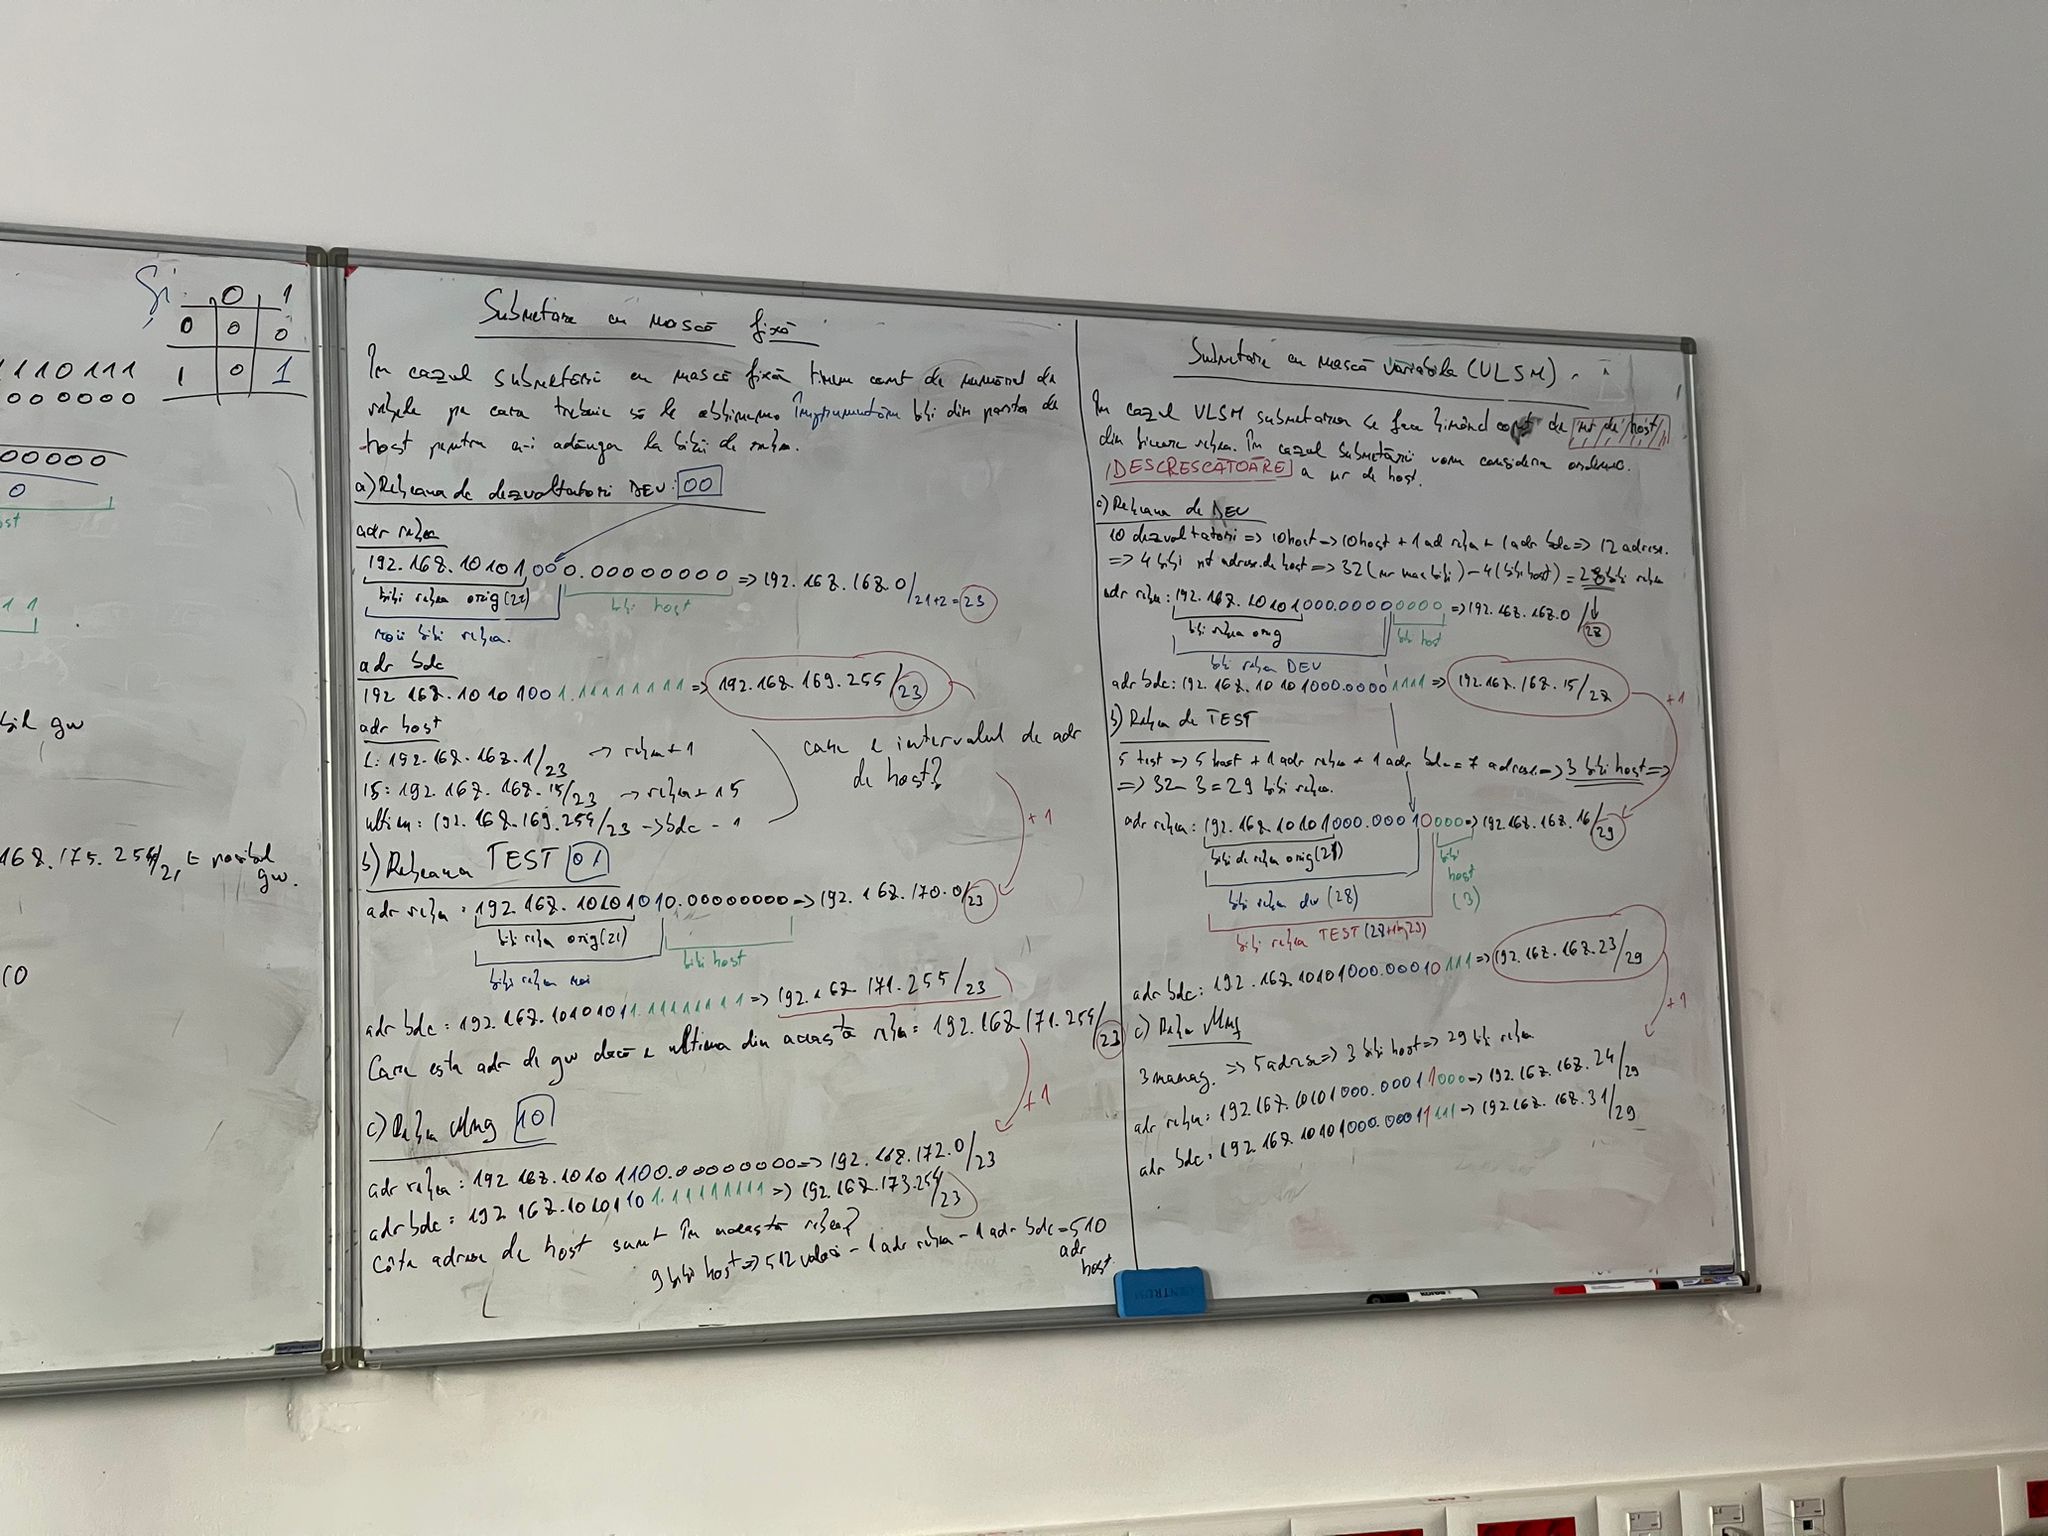 Și 0 1
0 0 0
1 0 1
1110111
0000000
00000
0
ost
11
gw
168.175.254/21 E posibil
gw.
Subnetare cu mască fixă
În cazul subnetării cu mască fixă ținem cont de numărul de
rețele pe care trebuie să le obținem. Împrumutăm biți din partea de
host pentru a-i adăuga la biții de rețea.
a) Rețeaua de dezvoltatori DEV: 00
adr rețea
192.168.10101000.00000000 => 192.168.168.0/21+2=23
biți rețea orig (21)
biți host
noii biți rețea.
adr bdc
192.168.10101001.11111111 => 192.168.169.255/23
adr host
1: 192.168.168.1/23 -> rețea + 1
15: 192.168.168.15/23 -> rețea + 15
ultim: 192.168.169.254/23 -> bdc - 1
care e intervalul de adr
de host?
+1
b) Rețeaua TEST 01
adr rețea: 192.168.10101010.00000000 => 192.168.170.0/23
biți rețea orig (21)
biți host
biți rețea noi
adr bdc: 192.168.10101011.11111111 => 192.168.171.255/23
Care este adr de gw dacă e ultima din această rețea: 192.168.171.254/23
+1
c) Rețea Mng 10
adr rețea: 192.168.10101100.00000000 => 192.168.172.0/23
adr bdc: 192.168.10101101.11111111 => 192.168.173.254/23
Câte adrese de host sunt în această rețea?
9 biți host => 512 valori - 1 adr rețea - 1 adr bdc = 510
adr
host
Subnetare cu mască variabilă (VLSM)
În cazul VLSM subnetarea se face ținând cont de nr de host
din fiecare rețea. În cazul subnetării vom considera ordinea
DESCRESCĂTOARE a nr de host.
a) Rețeaua de DEV
10 dezvoltatori => 10 host => 10 host + 1 ad rețea + 1 adr bdc => 12 adrese.
=> 4 biți pt adrese de host => 32 (nr max biți) - 4 (biți host) = 28 biți rețea
adr rețea: 192.168.10101000.00000000 => 192.168.168.0/28
biți rețea orig
biți host
biți rețea DEV
adr bdc: 192.168.10101000.00001111 => 192.168.168.15/28
+1
b) Rețea de TEST
5 test => 5 host + 1 adr rețea + 1 adr bdc = 7 adrese => 3 biți host =>
=> 32 - 3 = 29 biți rețea.
adr rețea: 192.168.10101000.00010000 => 192.168.168.16/29
biți de rețea orig (21)
biți
host
(3)
biți rețea dev (28)
biți rețea TEST
adr bdc: 192.168.10101000.00010111 => 192.168.168.23/29
+1
c) Rețea Mng
3 manag. => 5 adrese => 3 biți host => 29 biți rețea
adr rețea: 192.168.10101000.00011000 => 192.168.168.24/29
adr bdc: 192.168.10101000.00011111 => 192.168.168.31/29
CENTRUM